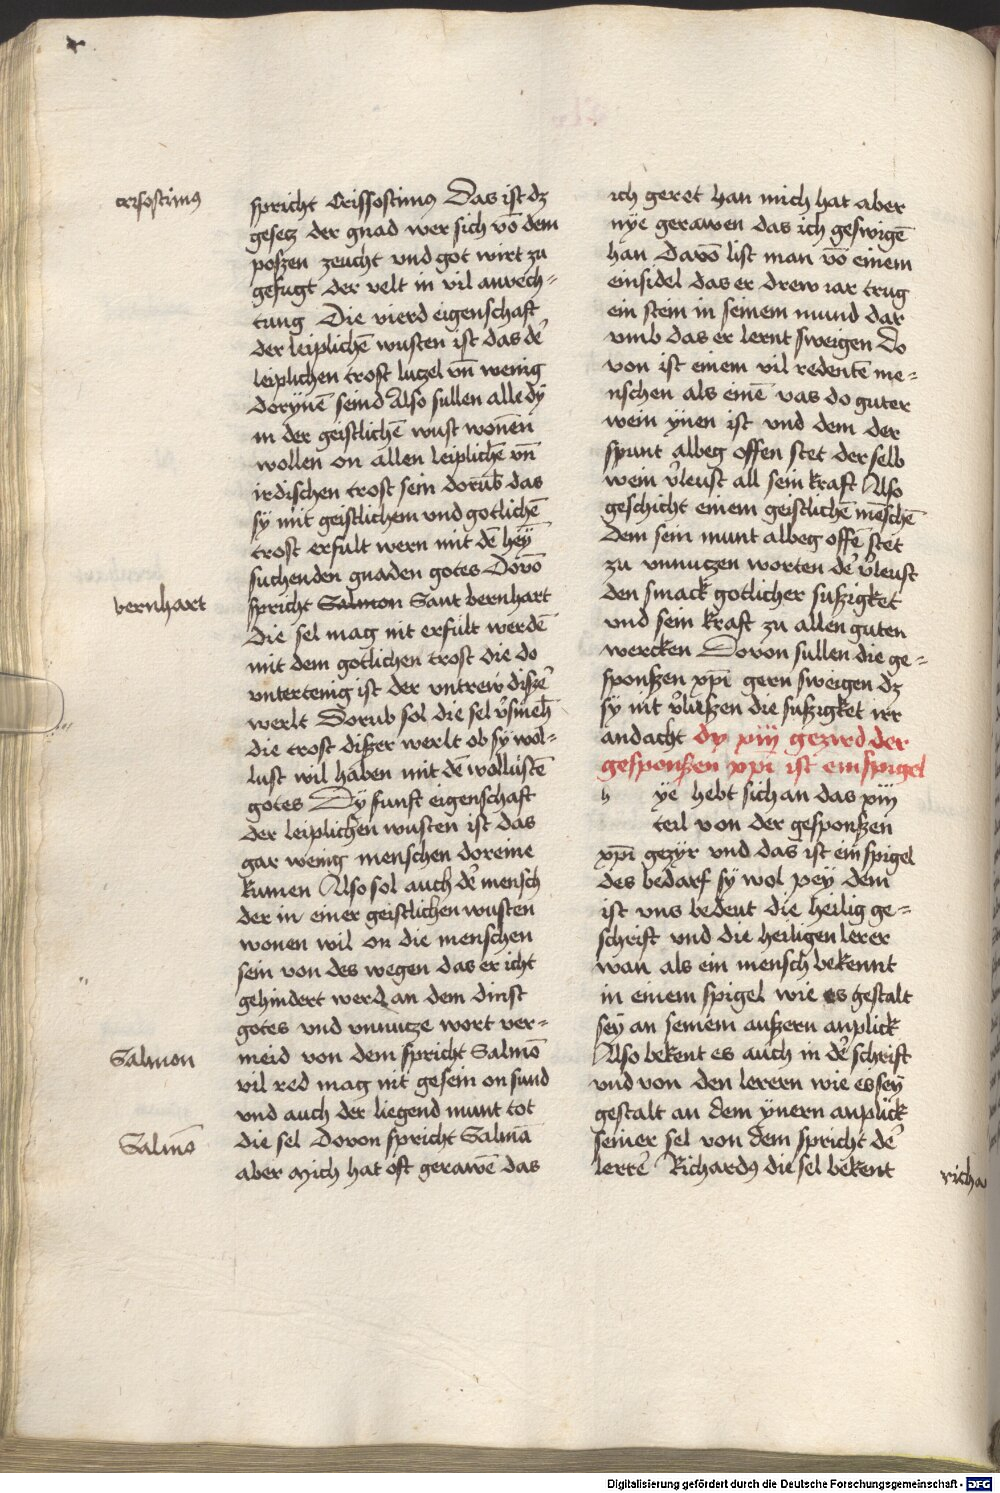 crisostimus
spricht Crissostimus Das ist dz
gesecz der gnad wer sich vō dem
poszen zeucht vnd got wirt zu
gefugt der velt in vil anvech=
tung Die vierd eigenschaft
der leiplichē wusten ist das dē
leiplichen trost luczel vn̄ wenig
dorynē seind Also sullen alle dy
in der geistlichē wust wonen
wollen on allen leiplichē vn̄
irdischen trost sein dorūb das
sy mit geistlichem vnd gotlichē
trost erfult wern mit dē hey
suchenden gnaden gotes Dovō
bernhart
spricht Salmon Sant bernhart
Die sel mag nit erfult werdē
mit dem gotlichen trost die do
vntertenig ist der vntrew diszē
werlt Dorub sol die sel v̄smeh
die trost diszer werlt ob sy wol=
lust wil haben mit dē wollustē
gotes Dy funft eigenschaft
der leiplichen wusten ist das
gar wenig menschen doreine
kumen Also sol auch dē mensch
der in einer geistlichen wusten
wonen wil on die menschen
sein von des wegen das er icht
gehindert werd an dem dinst
gotes vnd vnnucze wort ver=
Salmon
meid von dem spricht Salmō
vil red mag nit gesein on sund
vnd auch der liegend munt tot
Salmō
die sel Dovon spricht Salmā
aber Mich hat oft gerawē das
ich geret han mich hat aber
nye gerawen das ich geswigē
han Davō list man vō einem
einsidel das er drew iar trug
ein stein in seinem mund dar
vmb das er lernt sweigen Do
von ist einem vil redentē me=
nschen als einē vas do guter
wein ynen ist vnd dem der
spunt albeg offen stet der selb
wein v̄leust all sein kraft Also
geschicht einem geistlichē mēschē
Dem sein munt albeg offē stet
zu vnnuczen worten dē v̄leust
den smack gotlicher suszigket
vnd sein kraft zu allen guten
wercken Dovon sullen die ge=
sponszen xpī gern sweigen dz
sy nit v̄liszen die suszigket irr
andacht dy xiij gezird der
gesponszen xpī ist ein spigel
h ye hebt sich an das xiij
teil von der gesponszen
xpī gezyr vnd das ist ein spigel
des bedarf sy wol pey dem
ist vns bedeut die heilig ge=
schrift vnd die heiligen lerer
wan als ein mensch bekennt
in einem spigel wie es gestalt
sey an seinem auszern anplick
Also bekent es auch in dē schrift
vnd von den lerern wie es sey
gestalt an dem ynern anplick
seiner sel von dem spricht dē
lerrē Richardus die sel bekent
richa
Digitalisierung gefördert durch die Deutsche Forschungsgemeinschaft - DFG